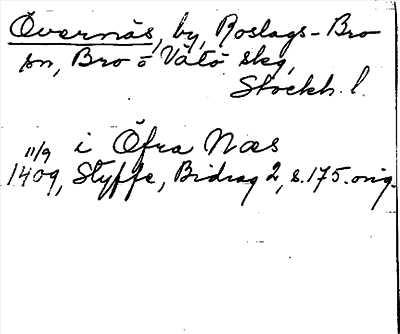 Övernäs, by, Roslags-Bro
sn, Bro o Vätö skg,
Stockh. l.
11/9 i Öfra Næs
1409, Styffe, Bidrag 2, s. 175. orig.